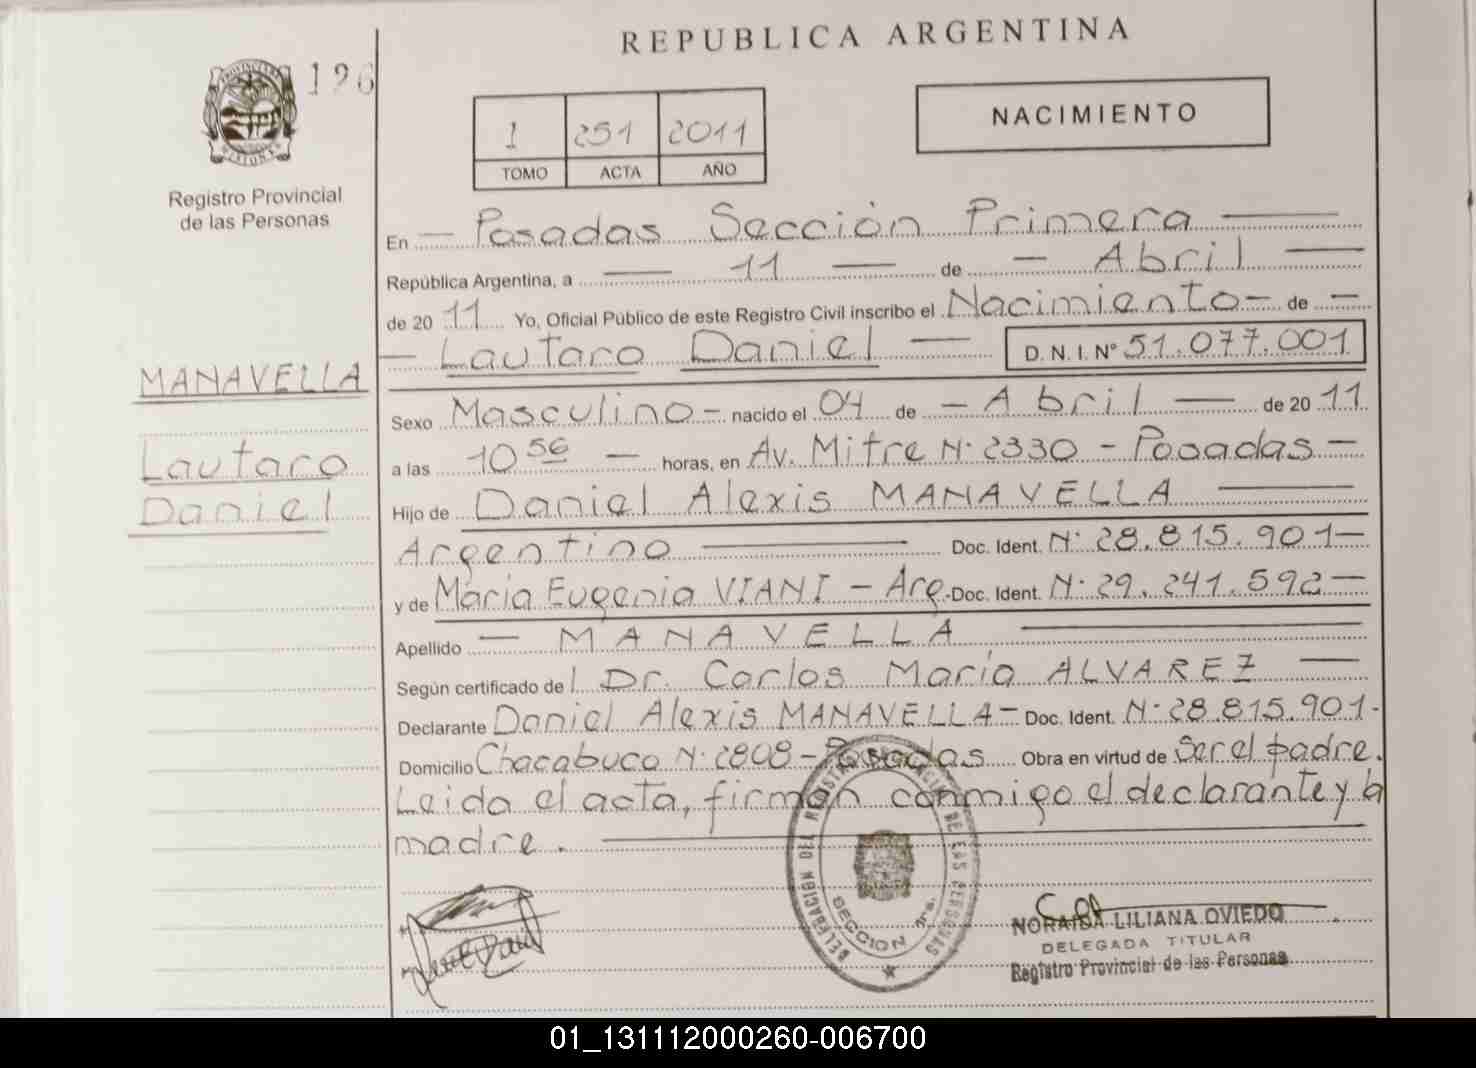 REPUBLICA ARGENTINA
196
PROVINCIA DE MISIONES
Registro Provincial
de las Personas
1 251 2011
TOMO ACTA AÑO
NACIMIENTO
En — Posadas Sección Primera —
República Argentina, a — 11 — de — Abril —
de 2011 Yo, Oficial Público de este Registro Civil inscribo el Nacimiento — de —
— Lautaro Daniel — D. N. I. Nº 51.077.001
MANAVELLA
Lautaro
Daniel
Sexo Masculino — nacido el 04 de — Abril — de 2011
a las 10 56 — horas, en Av. Mitre Nº 2330 - Posadas —
Hijo de Daniel Alexis MANAVELLA —
Argentino — Doc. Ident. Nº 28.815.901 —
y de María Eugenia VIANI — Arg. Doc. Ident. Nº 29.241.592 —
Apellido — MANAVELLA —
Según certificado del Dr. Carlos María ALVAREZ —
Declarante Daniel Alexis MANAVELLA — Doc. Ident. Nº 28.815.901 -
Domicilio Chacabuco Nº 2808 - Posadas Obra en virtud de Ser el padre.
Leida el acta, firman conmigo el declarante y la
madre. —
DELEGACION DEL REGISTRO PROVINCIAL DE LAS PERSONAS
SECCION 1ra.
NORAIDA LILIANA OVIEDO
DELEGADA TITULAR
Registro Provincial de las Personas
01_131112000260-006700